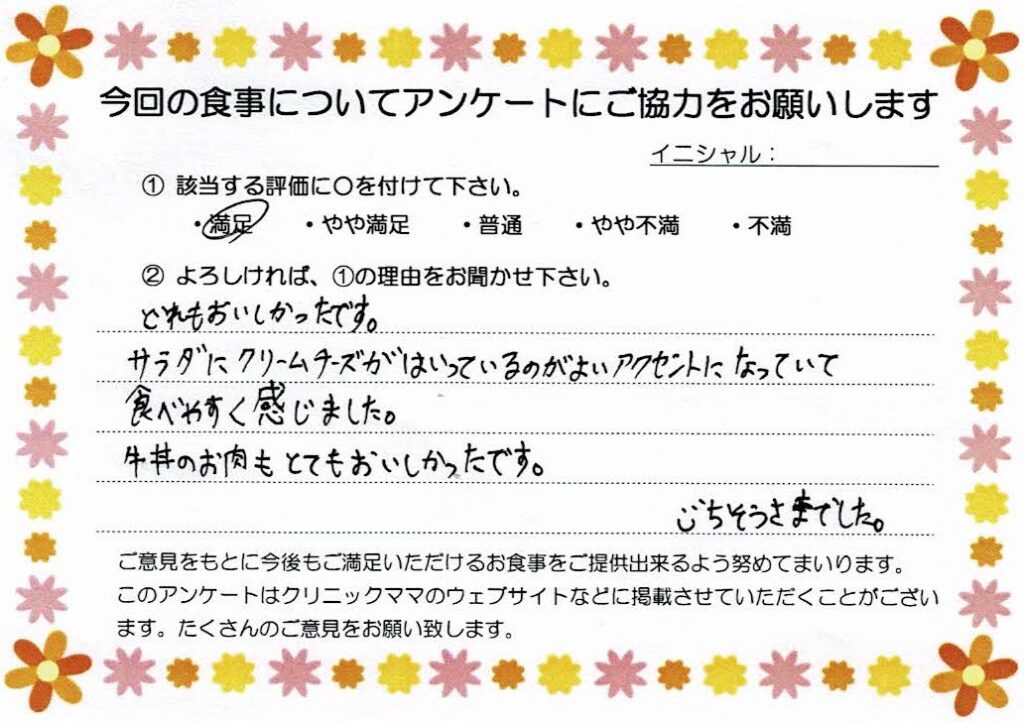 今回の食事についてアンケートにご協力をお願いします
イニシャル：
① 該当する評価に〇を付けて下さい。
・満足 ・やや満足 ・普通 ・やや不満 ・不満
② よろしければ、①の理由をお聞かせ下さい。
どれもおいしかったです。
サラダにクリームチーズがはいっているのがよいアクセントになっていて
食べやすく感じました。
牛丼のお肉もとてもおいしかったです。
ごちそうさまでした。
ご意見をもとに今後もご満足いただけるお食事をご提供出来るよう努めてまいります。
このアンケートはクリニックママのウェブサイトなどに掲載させていただくことがござい
ます。たくさんのご意見をお願い致します。